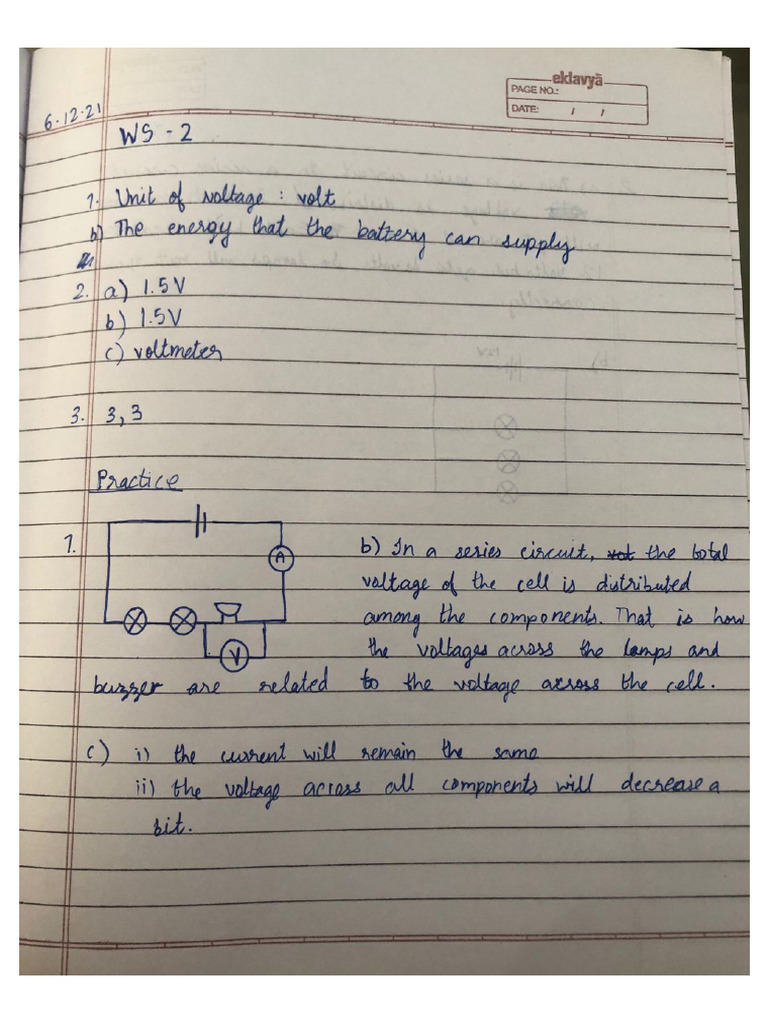 eklavyā
PAGE NO.:
DATE: / /
6.12.21
WS - 2
1. Unit of voltage : volt
b) The energy that the battery can supply
2. a) 1.5V
b) 1.5V
c) voltmeter
3. 3, 3
Practice
1.
A
V
b) In a series circuit, the total
voltage of the cell is distributed
among the components. That is how
the voltages across the lamps and
buzzer are related to the voltage across the cell.
c) i) the current will remain the same
ii) the voltage across all components will decrease a
bit.